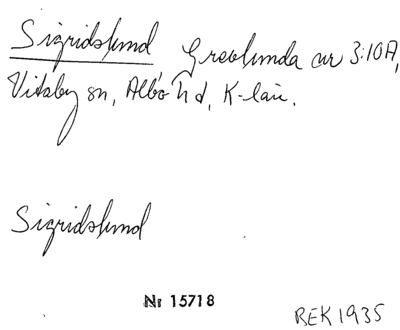 Sigridslund Grevlunda av 3:10A,
Vitaby sn, Albo hd, K-län.
Sigridslund
Nr 15718
REK 1935